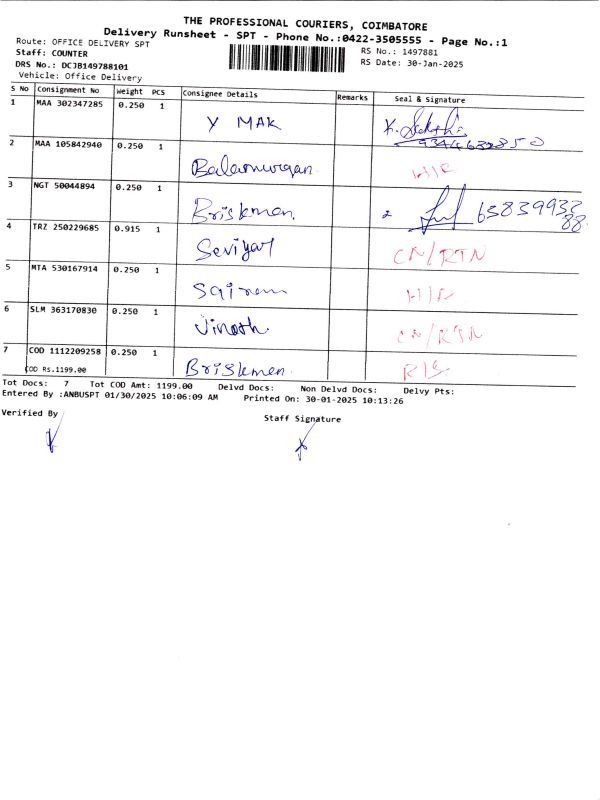 THE PROFESSIONAL COURIERS, COIMBATORE
Delivery Runsheet - SPT - Phone No.:0422-3505555 - Page No.:1
Route: OFFICE DELIVERY SPT
RS No.: 1497881
Staff: COUNTER
RS Date: 30-Jan-2025
DRS No.: DCJB149788101
Vehicle: Office Delivery
S No Consignment No Weight PCS Consignee Details Remarks Seal & Signature
1 MAA 302347285 0.250 1 Y MAK
2 MAA 105842940 0.250 1 Balamurugan H/R
3 NGT 50044894 0.250 1 Briskmen. 6383993288
4 TRZ 250229685 0.915 1 CN/RTN
5 MTA 530167914 0.250 1 Sairam H/R
6 SLM 363170830 0.250 1 Vinoth. CN/RTN
7 COD 1112209258 0.250 1 Briskmen.
COD RS.1199.00
Tot Docs: 7 Tot COD Amt: 1199.00 Delvd Docs: Non Delvd Docs: Delvy Pts:
Entered By :ANBUSPT 01/30/2025 10:06:09 AM Printed On: 30-01-2025 10:13:26
Verified By
Staff Signature